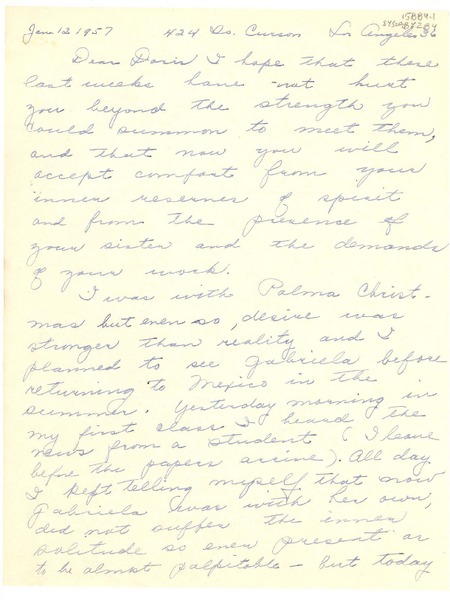 Jan 12 1957 424 So. Curson Los Angeles 36
Dear Doris I hope that these
last weeks have not hurt
you beyond the strength you
could summon to meet them,
and that now you will
accept comfort from your
inner reserves of spirit
and from the presence of
your sister and the demands
of your work.
I was with Palma Christ-
mas but even so, desire was
stronger than reality and I
planned to see Gabriela before
returning to Mexico in the
summer. Yesterday morning in
my first class I heard the
news from a student (I leave
before the papers arrive). All day
I kept telling myself that now
Gabriela was with her own,
did not suffer the inner
solitude so ever present as
to be almost palpitable - but today